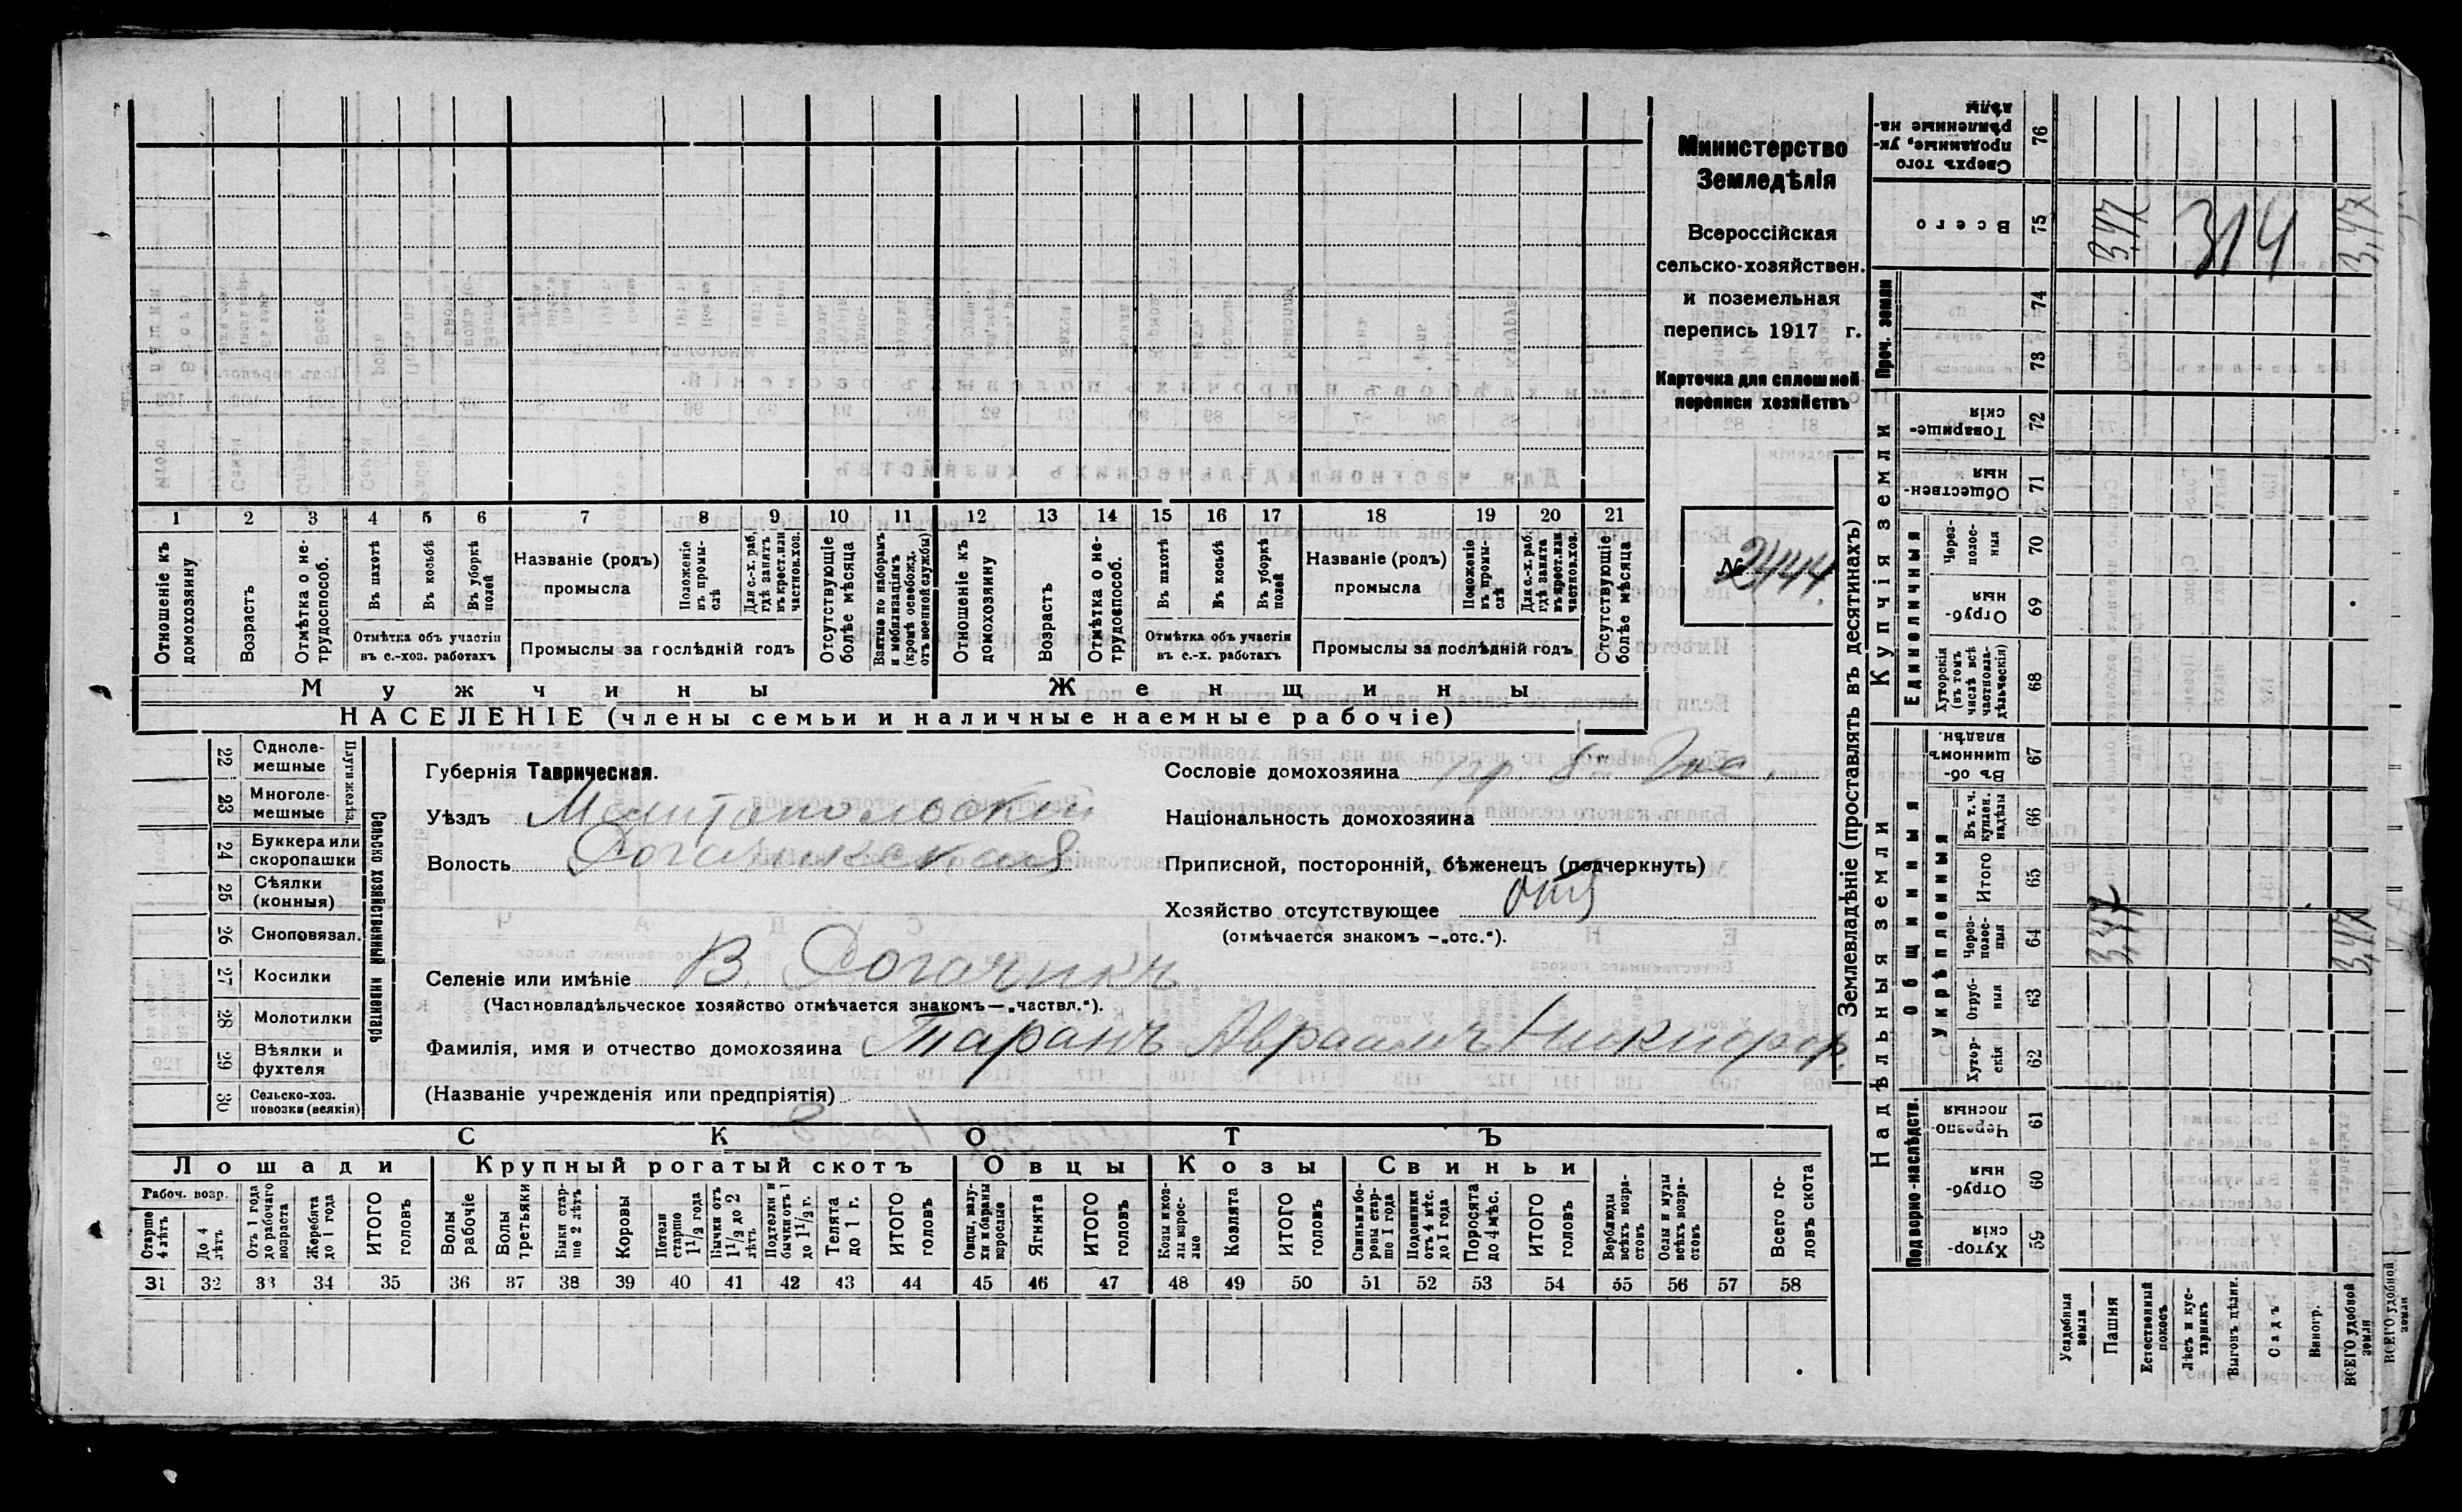 1 2 3 4 5 6 7 8 9 10 11 12 13 14 15 16 17 18 19 20 21
Отношеніе къ домохозяину
Возрастъ
Отмѣтка о не-трудоспособ.
Въ пахотѣ
Въ косьбѣ
Въ уборкѣ полей
Отмѣтка объ участіи
въ с.-хоз. работахъ
Названіе (родъ)
промысла
Положеніе въ промы-слѣ
Для с.-х. раб. гдѣ занятъ въ крест. или частнов. хоз.
Промыслы за послѣдній годъ
Отсутствующіе болѣе мѣсяца
Взятые по наборамъ и мобилизаціямъ (кромѣ освобожд. отъ военной службы)
Отношеніе къ домохозяину
Возрастъ
Отмѣтка о не-трудоспособ.
Въ пахотѣ
Въ косьбѣ
Въ уборкѣ полей
Отмѣтка объ участіи
въ с.-х. работахъ
Названіе (родъ)
промысла
Положеніе въ промы-слѣ
Для с.-х. раб. гдѣ занята въ крест. или частнов. хоз.
Промыслы за послѣдній годъ
Отсутствующіе болѣе мѣсяца
Мужчины
Женщины
НАСЕЛЕНІЕ (члены семьи и наличные наемные рабочіе)
Министерство
Земледѣлія
Всероссійская
сельско-хозяйствен.
и поземельная
перепись 1917 г.
Карточка для сплошной
переписи хозяйствъ
№ 2444.
22 Одноле-мешные
23 Многоле-мешные
Плуги желѣз.
24 Буккера или скоропашки
25 Сѣялки (конныя)
26 Сноповязал.
27 Косилки
28 Молотилки
29 Вѣялки и фухтеля
30 Сельско-хоз. повозки (всякія)
Сельско хозяйственный инвентарь
Губернія Таврическая.
Уѣздъ Мелитопольскій
Волость Рогачикская
Селеніе или имѣніе В. Рогачикъ
(Частновладѣльческое хозяйство отмѣчается знакомъ—„частвл.“).
Фамилія, имя и отчество домохозяина Таранъ Авраамъ Никифор.
(Названіе учрежденія или предпріятія)
Сословіе домохозяина
Національность домохозяина
Приписной, посторонній, бѣженецъ (подчеркнуть)
Хозяйство отсутствующее отс
(отмѣчается знакомъ —„отс.“).
СКОТЪ
Лошади Крупный рогатый скотъ Овцы Козы Свиньи
Рабоч. возр.
Старше 4 лѣтъ
До 4 лѣтъ
Отъ 1 года до рабочаго возраста
Жеребята до 1 года
ИТОГО головъ
Волы рабочіе
Волы третьяки
Быки стар-ше 2 лѣтъ
Коровы
Нетели старше 1 1/2 года
Бычки отъ 1 1/2 до 2 лѣтъ
Подтелки и бычки отъ 1 до 1 1/2 г.
Телята до 1 г.
ИТОГО головъ
Овцы, валу-хи и бараны взрослые
Ягнята
ИТОГО головъ
Козы и коз-лы взрос-лые
Козлята
ИТОГО головъ
Свиньи бо-ровы стар-ше 1 года
Подсвинки отъ 4 мѣс. до 1 года
Поросята до 4 мѣс.
ИТОГО головъ
Верблюды всѣхъ возра-стовъ
Ослы и мулы всѣхъ возра-стовъ
Всего го-ловъ скота
31 32 33 34 35 36 37 38 39 40 41 42 43 44 45 46 47 48 49 50 51 52 53 54 55 56 57 58
Землевладѣніе (проставлять въ десятинахъ)
Сверхъ того проданные, ук-рѣпленные на-дѣлы 76
Всего 75 3,47 314 3,47
Проч. земли 74 73
Купчія земли
Товарище-скія 72
Обществен-ныя 71
Единоличныя
Через-полос-ныя 70
Отруб-ныя 69
Хуторскія (въ томъ числѣ всѣ частновла-дѣльческія) 68
Надѣльныя земли
Общинныя
Въ об-щинномъ владѣн. 67
Укрѣпленныя
Въ т. ч. куплен. надѣлы 66
Итого 65
Через-полос-ныя 64 3,47 3,47
Отруб-ныя 63
Хутор-скія 62
Подворно-наслѣдств.
Черезпо-лосныя 61
Отруб-ныя 60
Хутор-скія 59
Усадебныя земли
Пашня
Естественный покосъ
Лѣсъ и кус-тарникъ
Выгонъ цѣлин.
Садъ
Виногр.
ВСЕГО удобной земли
ВСЕГО удобной земли